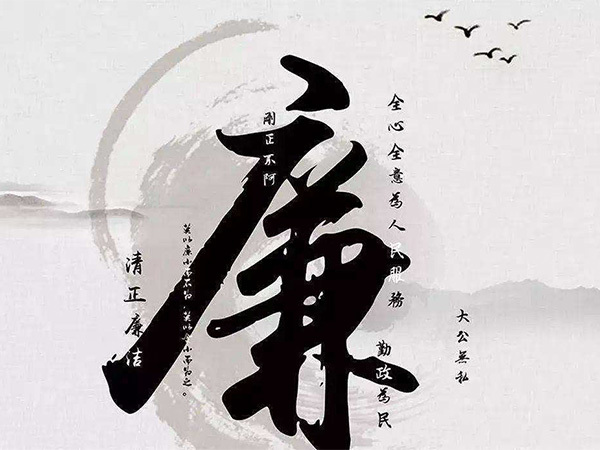 廉
大公無私
全心全意為人民服務
勤政為民
剛正不阿
莫以廉小而不为,莫以贪小而为之。
清正廉洁